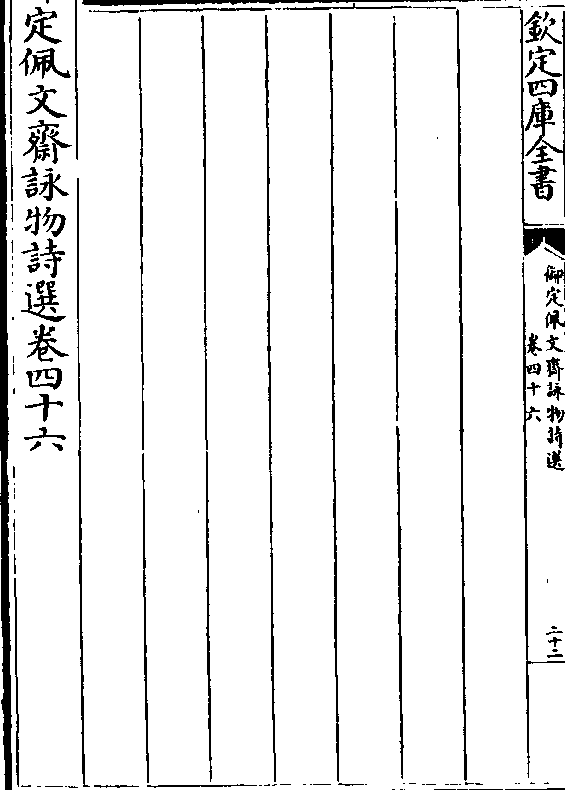 欽定四庫全書
御定佩文齋詠物詩選
卷四十六
二十二
定佩文齋詠物詩選卷四十六